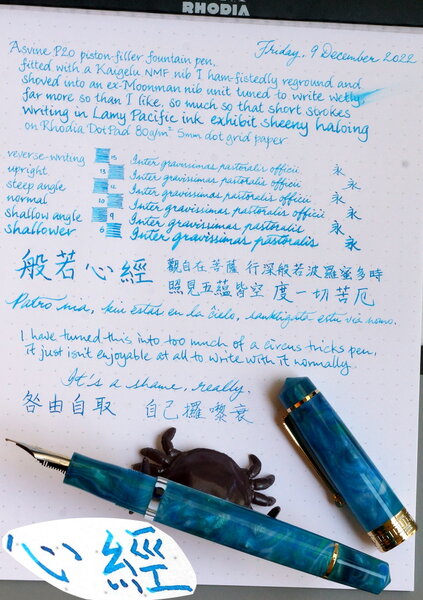 RHODIA
Friday, 9 December 2022
Asvine P20 piston-filler fountain pen,
fitted with a Kaigelu NMF nib I ham-fistedly reground and
shoved into an ex-Moonman nib unit tuned to write wetly
far more so than I like, so much so that short strokes
writing in Lamy Pacific ink exhibit sheeny haloing
on Rhodia DotPad 80g/m² 5mm dot grid paper
reverse-writing 15 Inter gravissimas pastoralis officii 永
upright 13 Inter gravissimas pastoralis officii 永
steep angle 12 Inter gravissimas pastoralis officii 永
normal 10 Inter gravissimas pastoralis officii 永
shallow angle 9 Inter gravissimas pastoralis 永
shallower 6 Inter gravissimas pastoralis 永
般若心經 觀自在菩薩 行深般若波羅蜜多時
照見五蘊皆空 度一切苦厄
Patro nia, kiu estas en la ĉielo, sanktigata estu via nomo.
I have turned this into too much of a circus tricks pen,
it just isn't enjoyable at all to write with it normally.
It's a shame, really.
咎由自取 自己攞嚟衰
心經